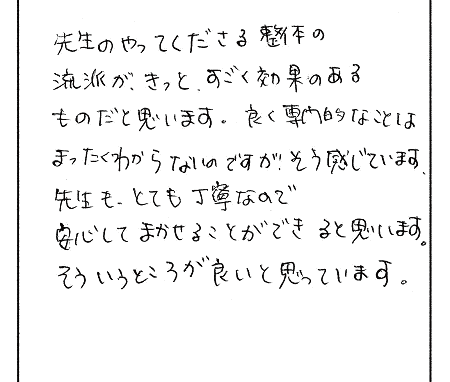 先生のやってくださる整体の
流派が、きっと、すごく効果のある
ものだと思います。良く専門的なことは
まったくわからないのですが、そう感じています。
先生も、とても丁寧なので
安心してまかせることができると思います。
そういうところが良いと思っています。